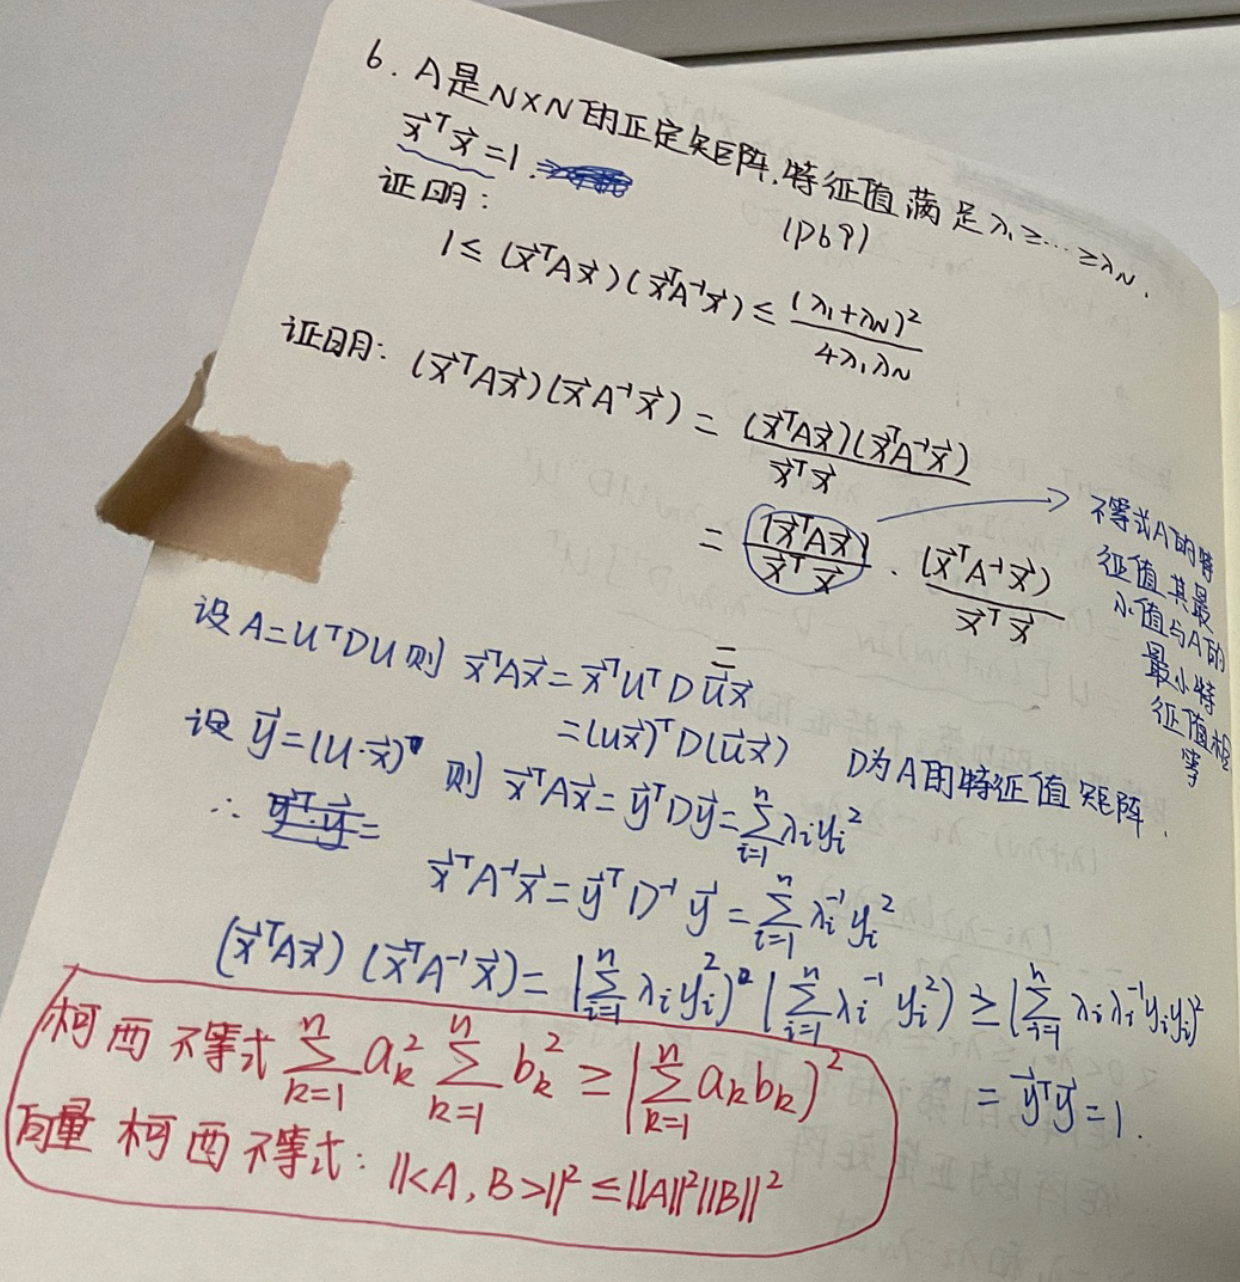 6. A是N×N的正定矩阵,特征值满足λ₁≥…≥λN.
x⃗ᵀx⃗=1.
(P69)
证明:
1≤(x⃗ᵀAx⃗)(x⃗ᵀA⁻¹x⃗)≤(λ₁+λN)²/4λ₁λN
证明: (x⃗ᵀAx⃗)(x⃗A⁻¹x⃗)=(x⃗ᵀAx⃗)(x⃗ᵀA⁻¹x⃗)/x⃗ᵀx⃗
=(x⃗ᵀAx⃗)/x⃗ᵀx⃗·(x⃗ᵀA⁻¹x⃗)/x⃗ᵀx⃗
不等式A的特
征值其最
小值与A的
最小特
征值相
等
=
设A=UᵀDU则 x⃗ᵀAx⃗=x⃗ᵀUᵀDu⃗x⃗
=(ux⃗)ᵀD(u⃗x⃗) D为A的特征值矩阵.
设y⃗=(U·x⃗) 则 x⃗ᵀAx⃗=y⃗ᵀDy⃗=∑ⁿᵢ₌₁λᵢyᵢ²
∴ y⃗ᵀ·y⃗=
x⃗ᵀA⁻¹x⃗=y⃗ᵀD⁻¹y⃗=∑ⁿᵢ₌₁λᵢ⁻¹yᵢ²
(x⃗ᵀAx⃗)(x⃗ᵀA⁻¹x⃗)=(∑ⁿᵢ₌₁λᵢyᵢ²)(∑ⁿᵢ₌₁λᵢ⁻¹yᵢ²)≥(∑ⁿᵢ₌₁λᵢλᵢ⁻¹yᵢyᵢ)²
=y⃗ᵀy⃗=1.
柯西不等式∑ⁿₖ₌₁aₖ²∑ⁿₖ₌₁bₖ²≥(∑ⁿₖ₌₁aₖbₖ)²
向量柯西不等式:||<A,B>||²≤||A||²||B||²